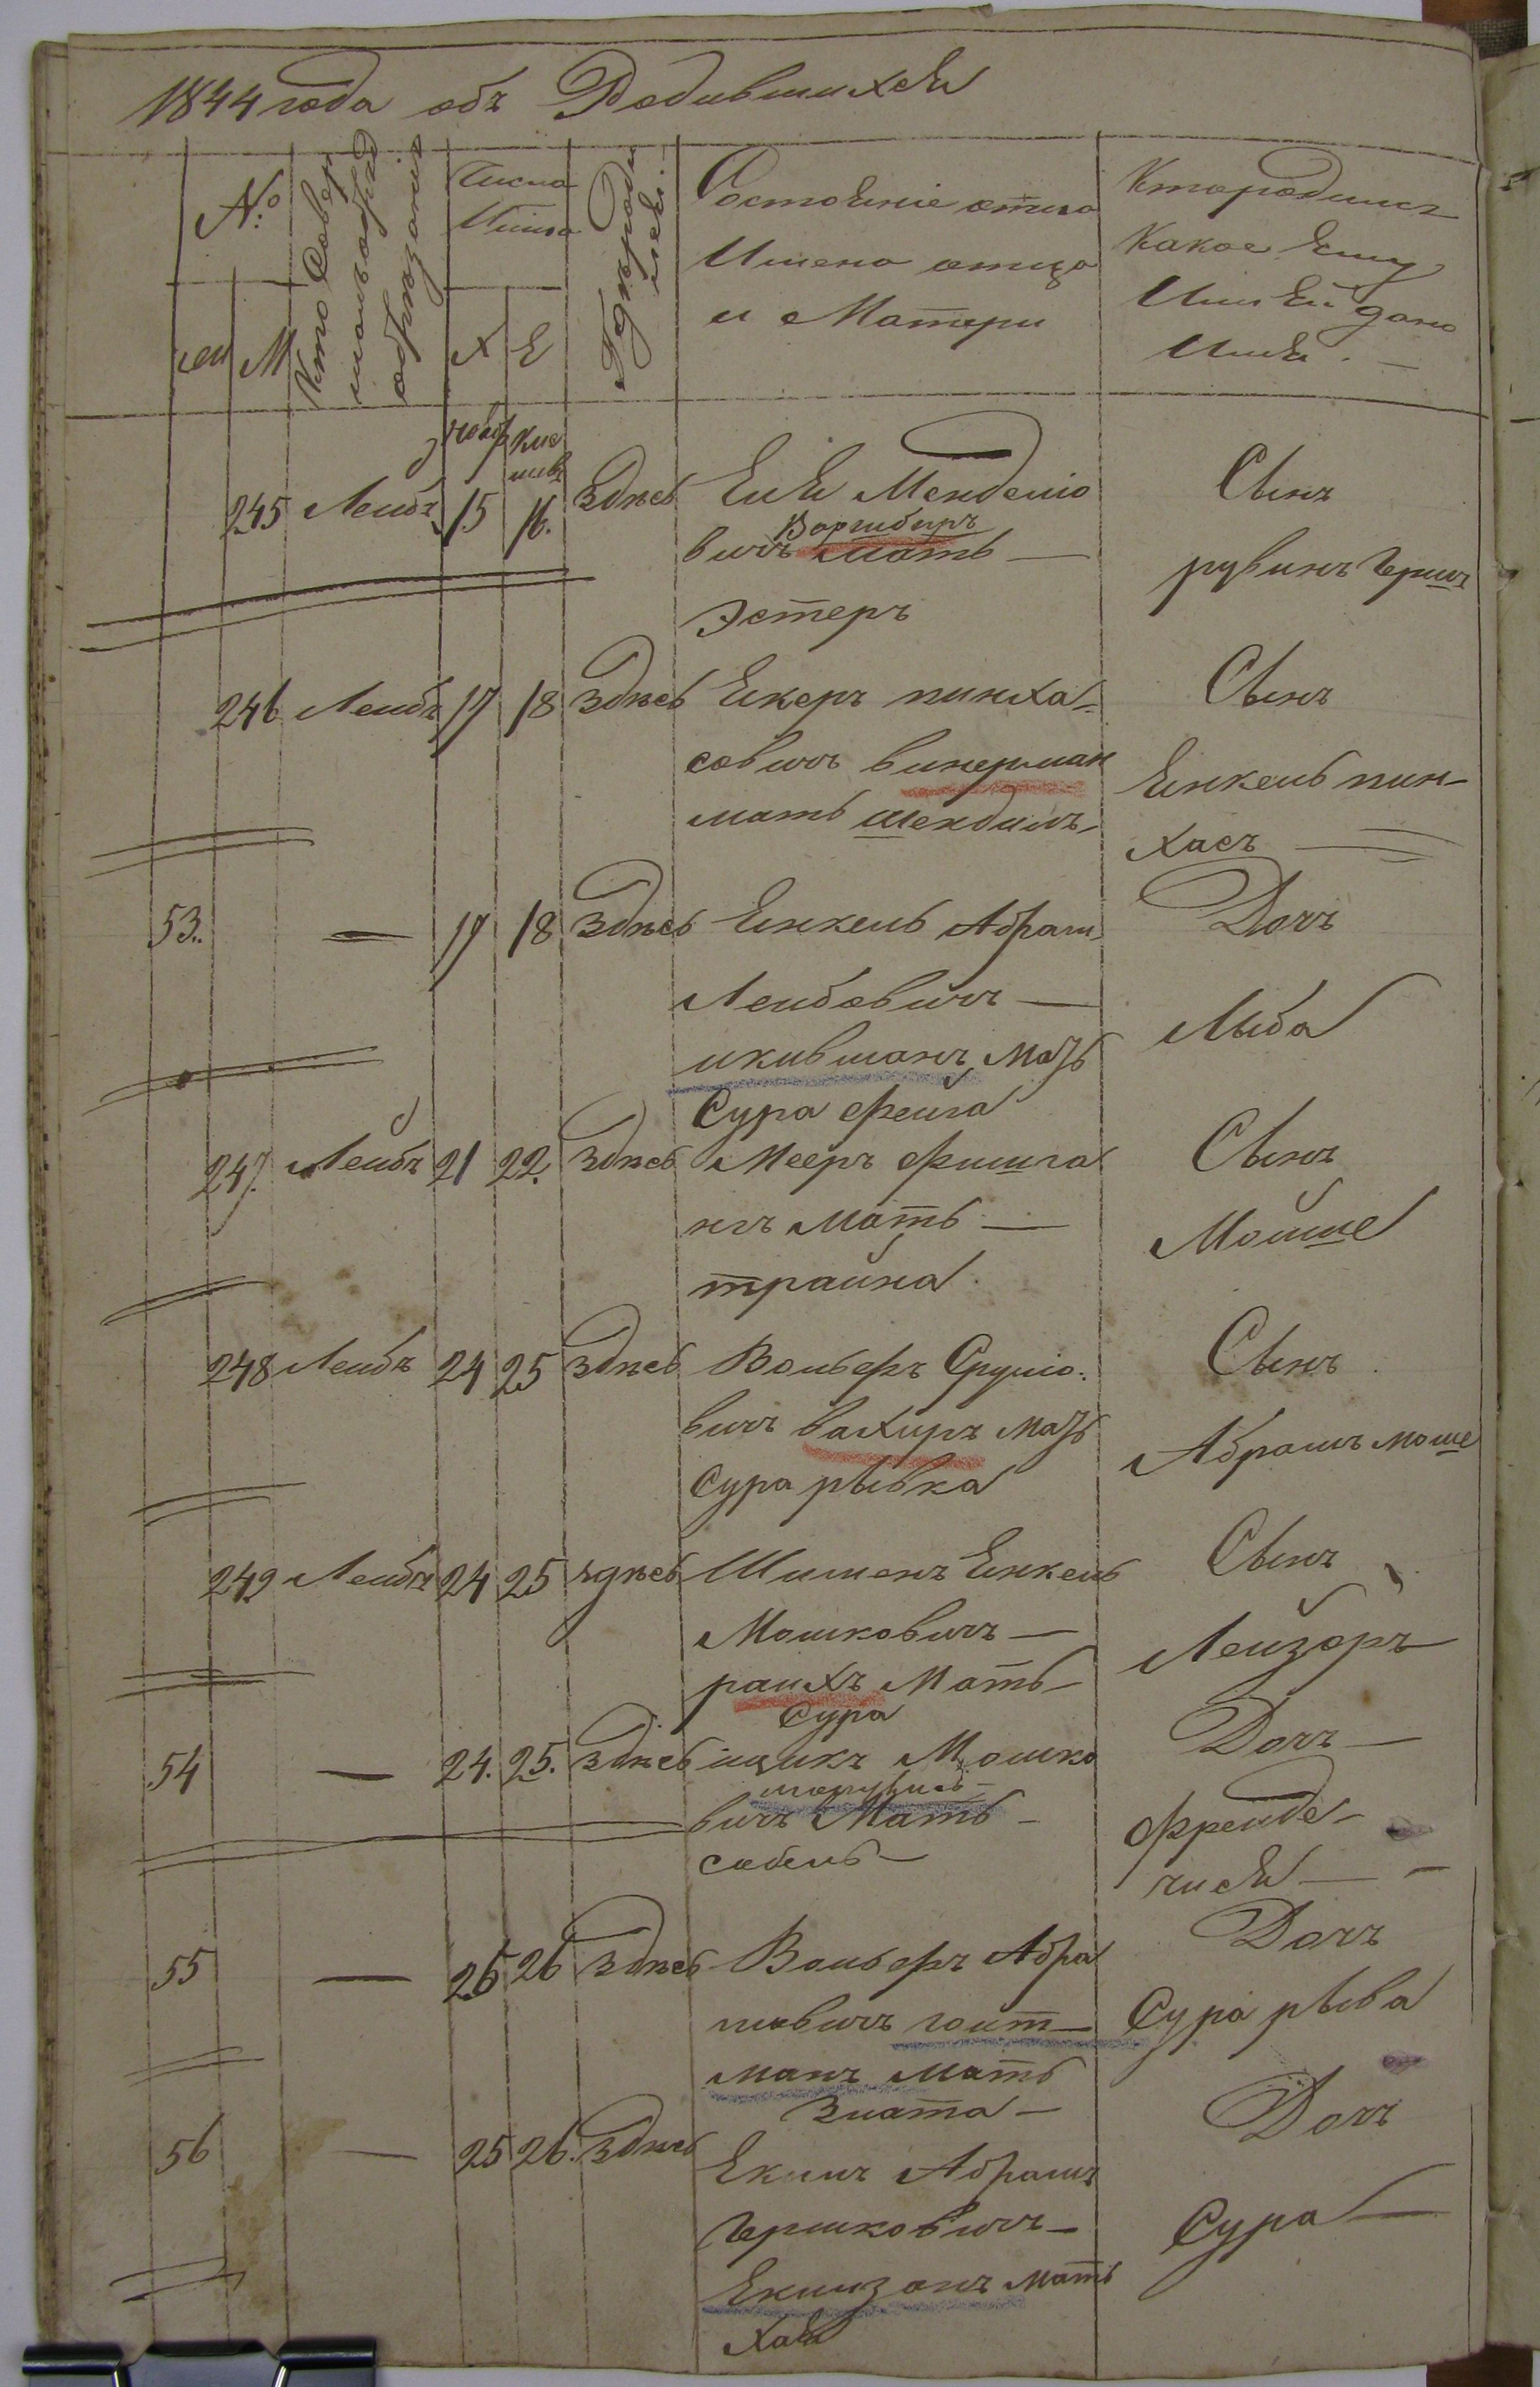 1844 года объ Родившихся
№
Кто совер
шалъ обряд
обрезания
Число
Где роди
лся
Состояніе отца
Имена отца
и Матери
Кто родился
Какое Ему
Или Ей дано
Имя. —
М
Х Е
245 Лейбъ 15 16. Здѣсь Мендело
вичъ Мать —
Эстеръ
Сынъ
рувинъ Гершъ
246 Лейбъ 17 18 Здѣсь пинха-
совичъ винерман
мать шендилъ
Сынъ
Еинкель пин-
хасъ
53. — 17 18 Здѣсь Еинкель Абрам
Лейбовичъ —
Мать
Сура фейга
Дочъ
Лыба
247. Лейбъ 21 22. Здѣсь Мееръ Фишга
нгъ Мать —
трайна.
Сынъ
Моише
248 Лейбъ 24 25 Здѣсь Вольфъ Срулio-
вичъ вахиръ Мать
Сура рывка
Сынъ.
Абрамъ моше
249 Лейбъ 24 25 здѣсь Шименъ Еинкель
Мошковичъ —
раихъ Мать
Сура
Сынъ
Лейзоръ
54 — 24. 25. Здѣсь ицикъ Мошко
вичъ Мать —
собель —
Дочъ —
Фрейде —
55 — 25 26 Здѣсь Вольфъ Абра
мовичъ гоит—
манъ Мать
Злата —
Дочъ
Сура рыва
56 — 25 26. Здѣсь Абрамъ
Гершковичъ —
мать
Хая
Дочъ
Сура —